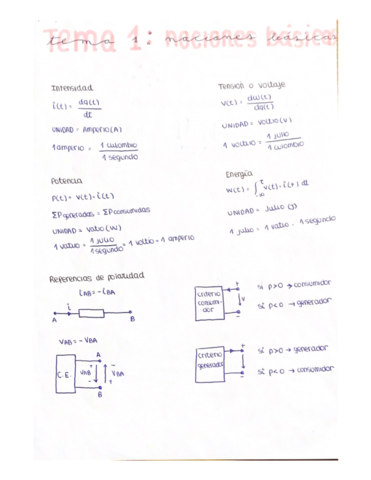 tema 1: nociones básicas
Intensidad
i(t) = dq(t)/dt
UNIDAD = Amperio (A)
1 amperio = 1 culombio / 1 segundo
Tensión o voltaje
v(t) = dw(t)/dq(t)
UNIDAD = Voltio (V)
1 voltio = 1 julio / 1 culombio
Potencia
p(t) = v(t) · i(t)
ΣP generadas = ΣP consumidas
UNIDAD = Vatio (W)
1 vatio = 1 julio / 1 segundo = 1 voltio · 1 amperio
Energía
w(t) = ∫ v(t) · i(t) dt
UNIDAD = Julio (J)
1 julio = 1 vatio · 1 segundo
Referencias de polaridad
iAB = -iBA
i
A B
VAB = - VBA
C.E.
A
+ - 
VAB VBA
- +
B
criterio consumidor
i
+
v
-
si p>0 → consumidor
si p<0 → generador
criterio generador
si p>0 → generador
si p<0 → consumidor